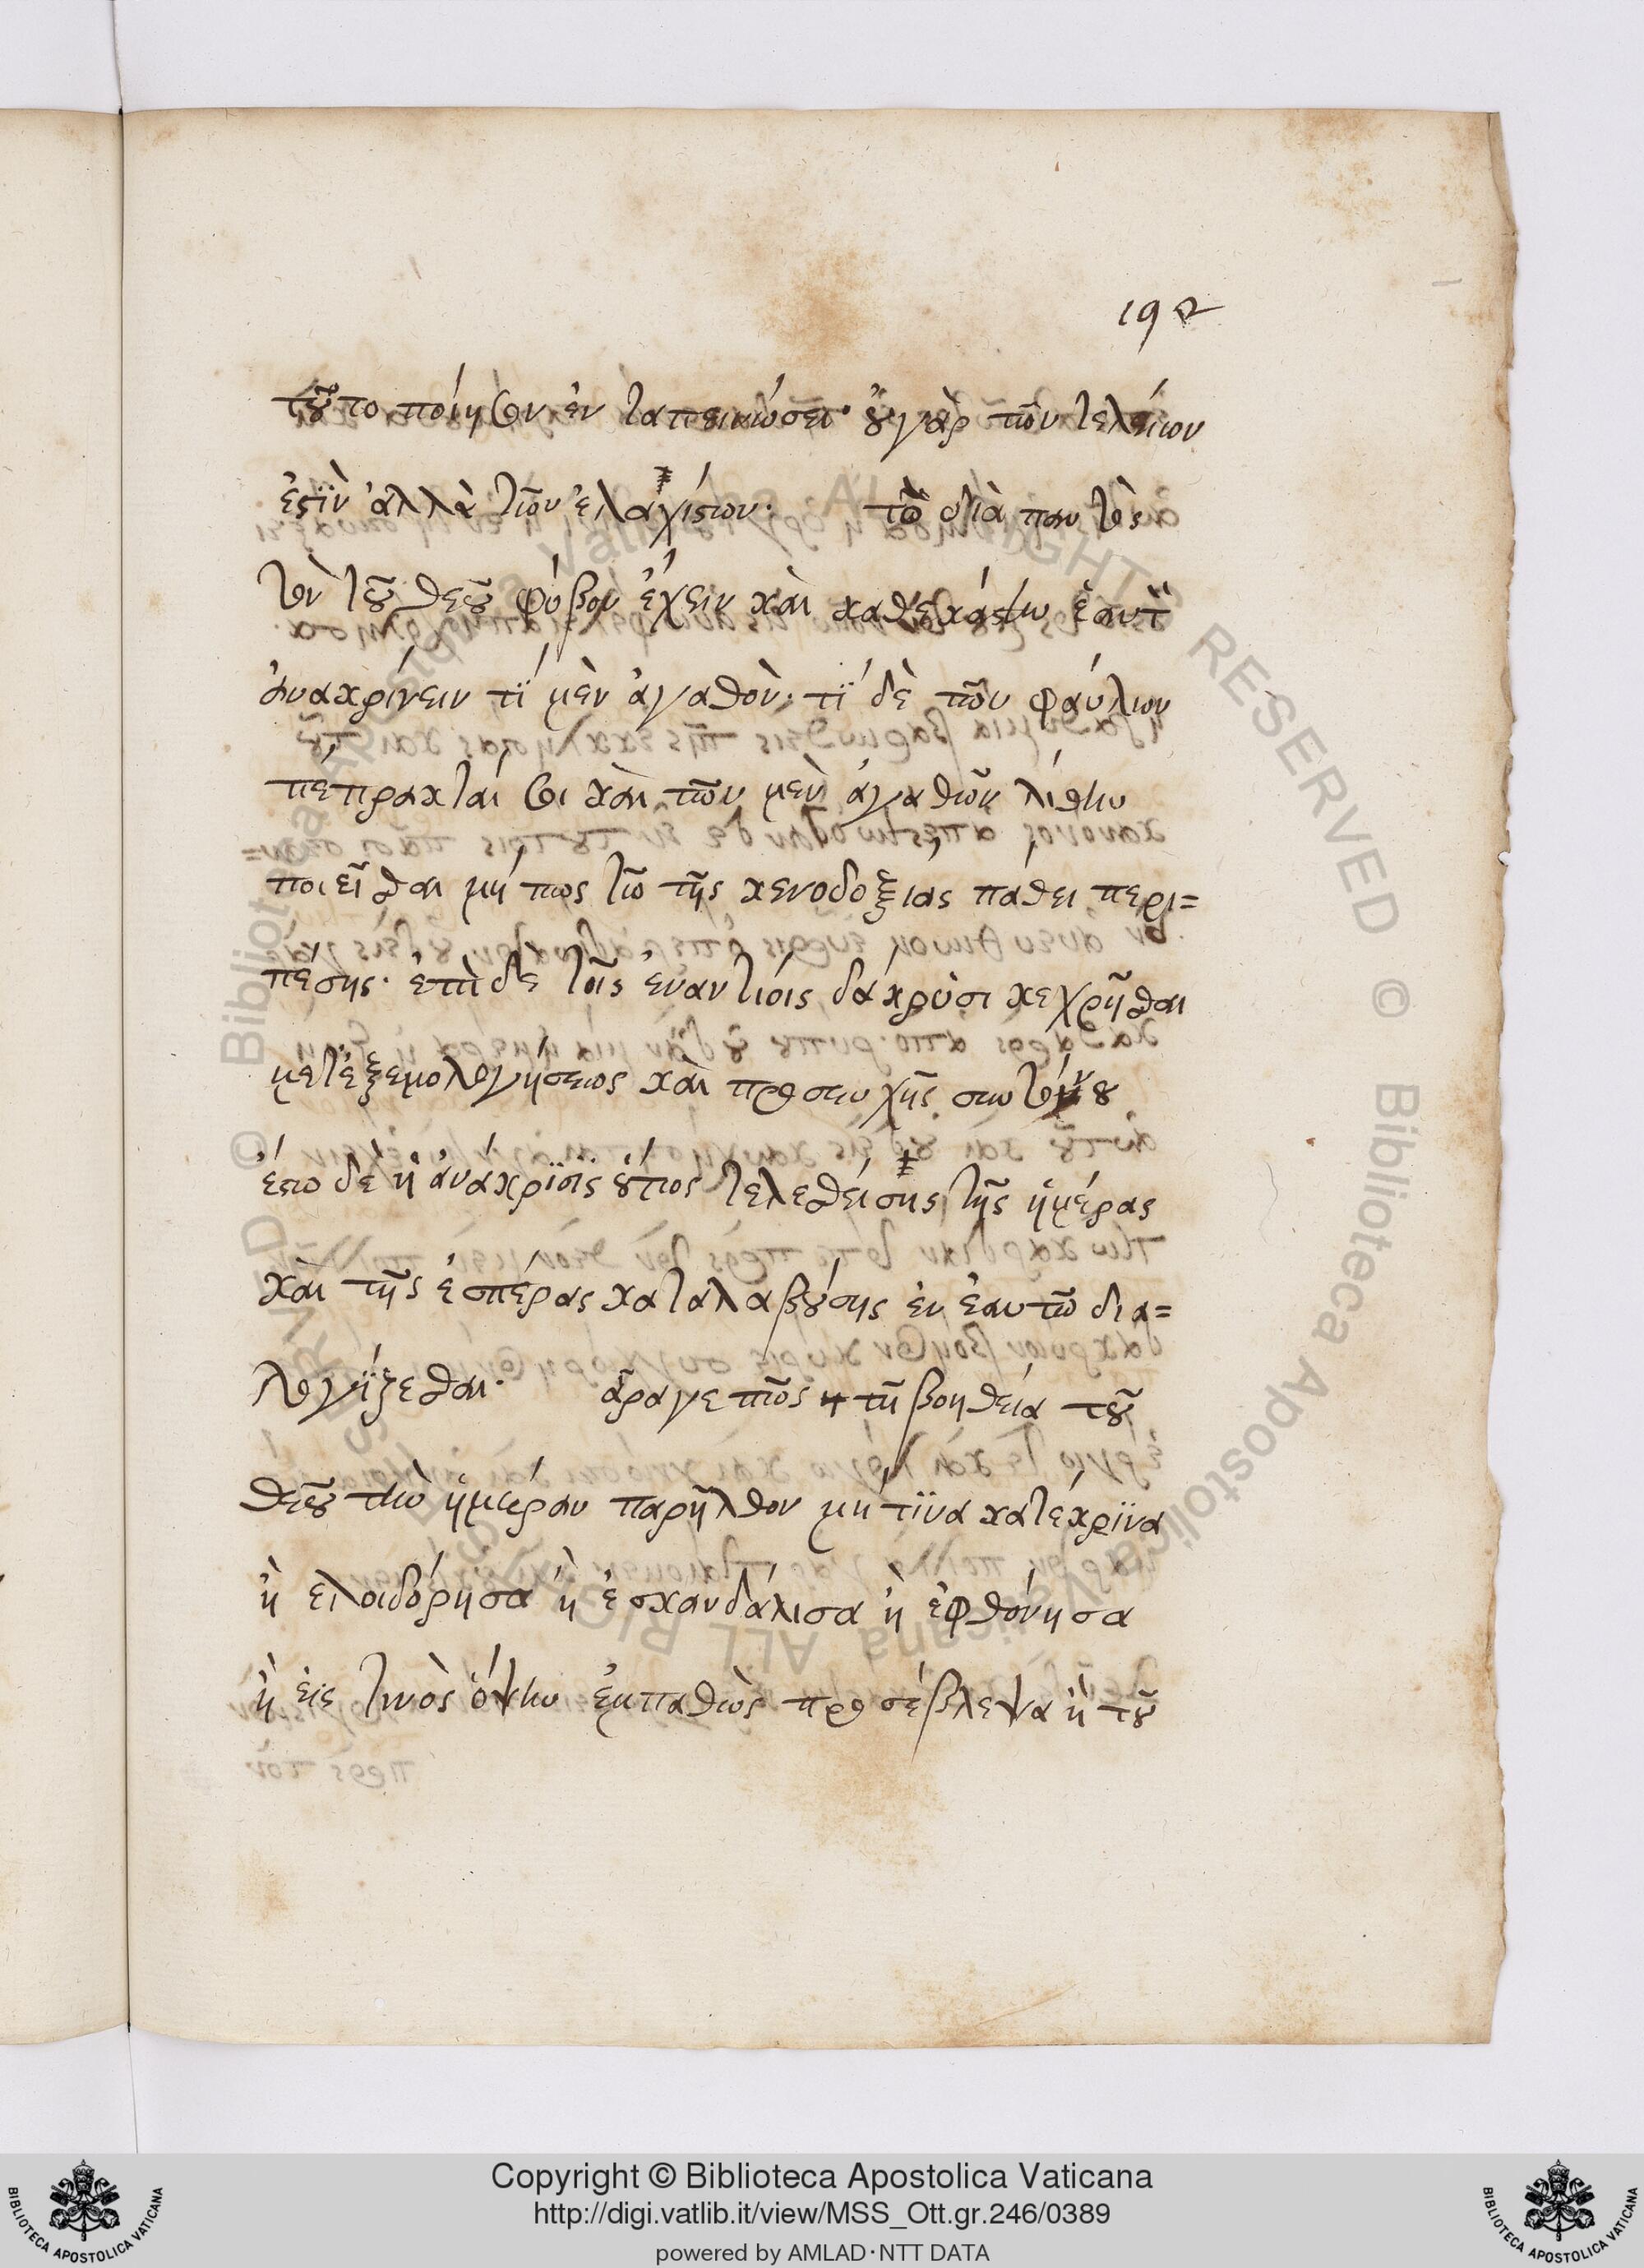 192
τοῦτο ποίησον ἐν ταπεινώσει· οὐ γὰρ τῶν τελείων
ἐστὶν ἀλλὰ τῶν ἐλαχίστων· τὸ διὰ παντὸς
τὸν τοῦ θεοῦ φόβον ἔχειν καὶ καθεκάστην ἑαυτ
ἀνακρίνειν τί μὲν ἀγαθὸν· τί δὲ τῶν φαύλων
πέπρακταί σοι καὶ τῶν μὲν ἀγαθῶν λίθην
ποιεῖσθαι μήπως τῶ τῆς κενοδοξίας πάθει περι=
πέσης· ἐπὶ δὲ τοῖς ἐναντίοις δάκρυσι κεχρῆσθαι
μετ' ἐξεμολογήσεως καὶ προσευχῆς συντόνου
ἔστω δὲ ἡ ἀνάκρισις οὕτως τελεσθείσης τῆς ἡμέρας
καὶ τῆς ἑσπέρας καταλαβούσης ἐν ἑαυτῶ δια=
λογίζεσθαι· ἆραγε πῶς τῆ βοηθεία τοῦ
θεοῦ τὴν ἡμέραν παρῆλθον μή τινα κατέκρινα
ἢ ελοιδόρησα ἢ ἐσκανδάλισα ἢ ἐφθόνησα
ἢ εἰς τινὸς ὄψιν ἐμπαθῶς προσέβλεψα ἢ τοῦ
Copyright © Biblioteca Apostolica Vaticana
http://digi.vatlib.it/view/MSS_Ott.gr.246/0389
powered by AMLAD·NTT DATA
BIBLIOTECA APOSTOLICA VATICANA
BIBLIOTECA APOSTOLICA VATICANA